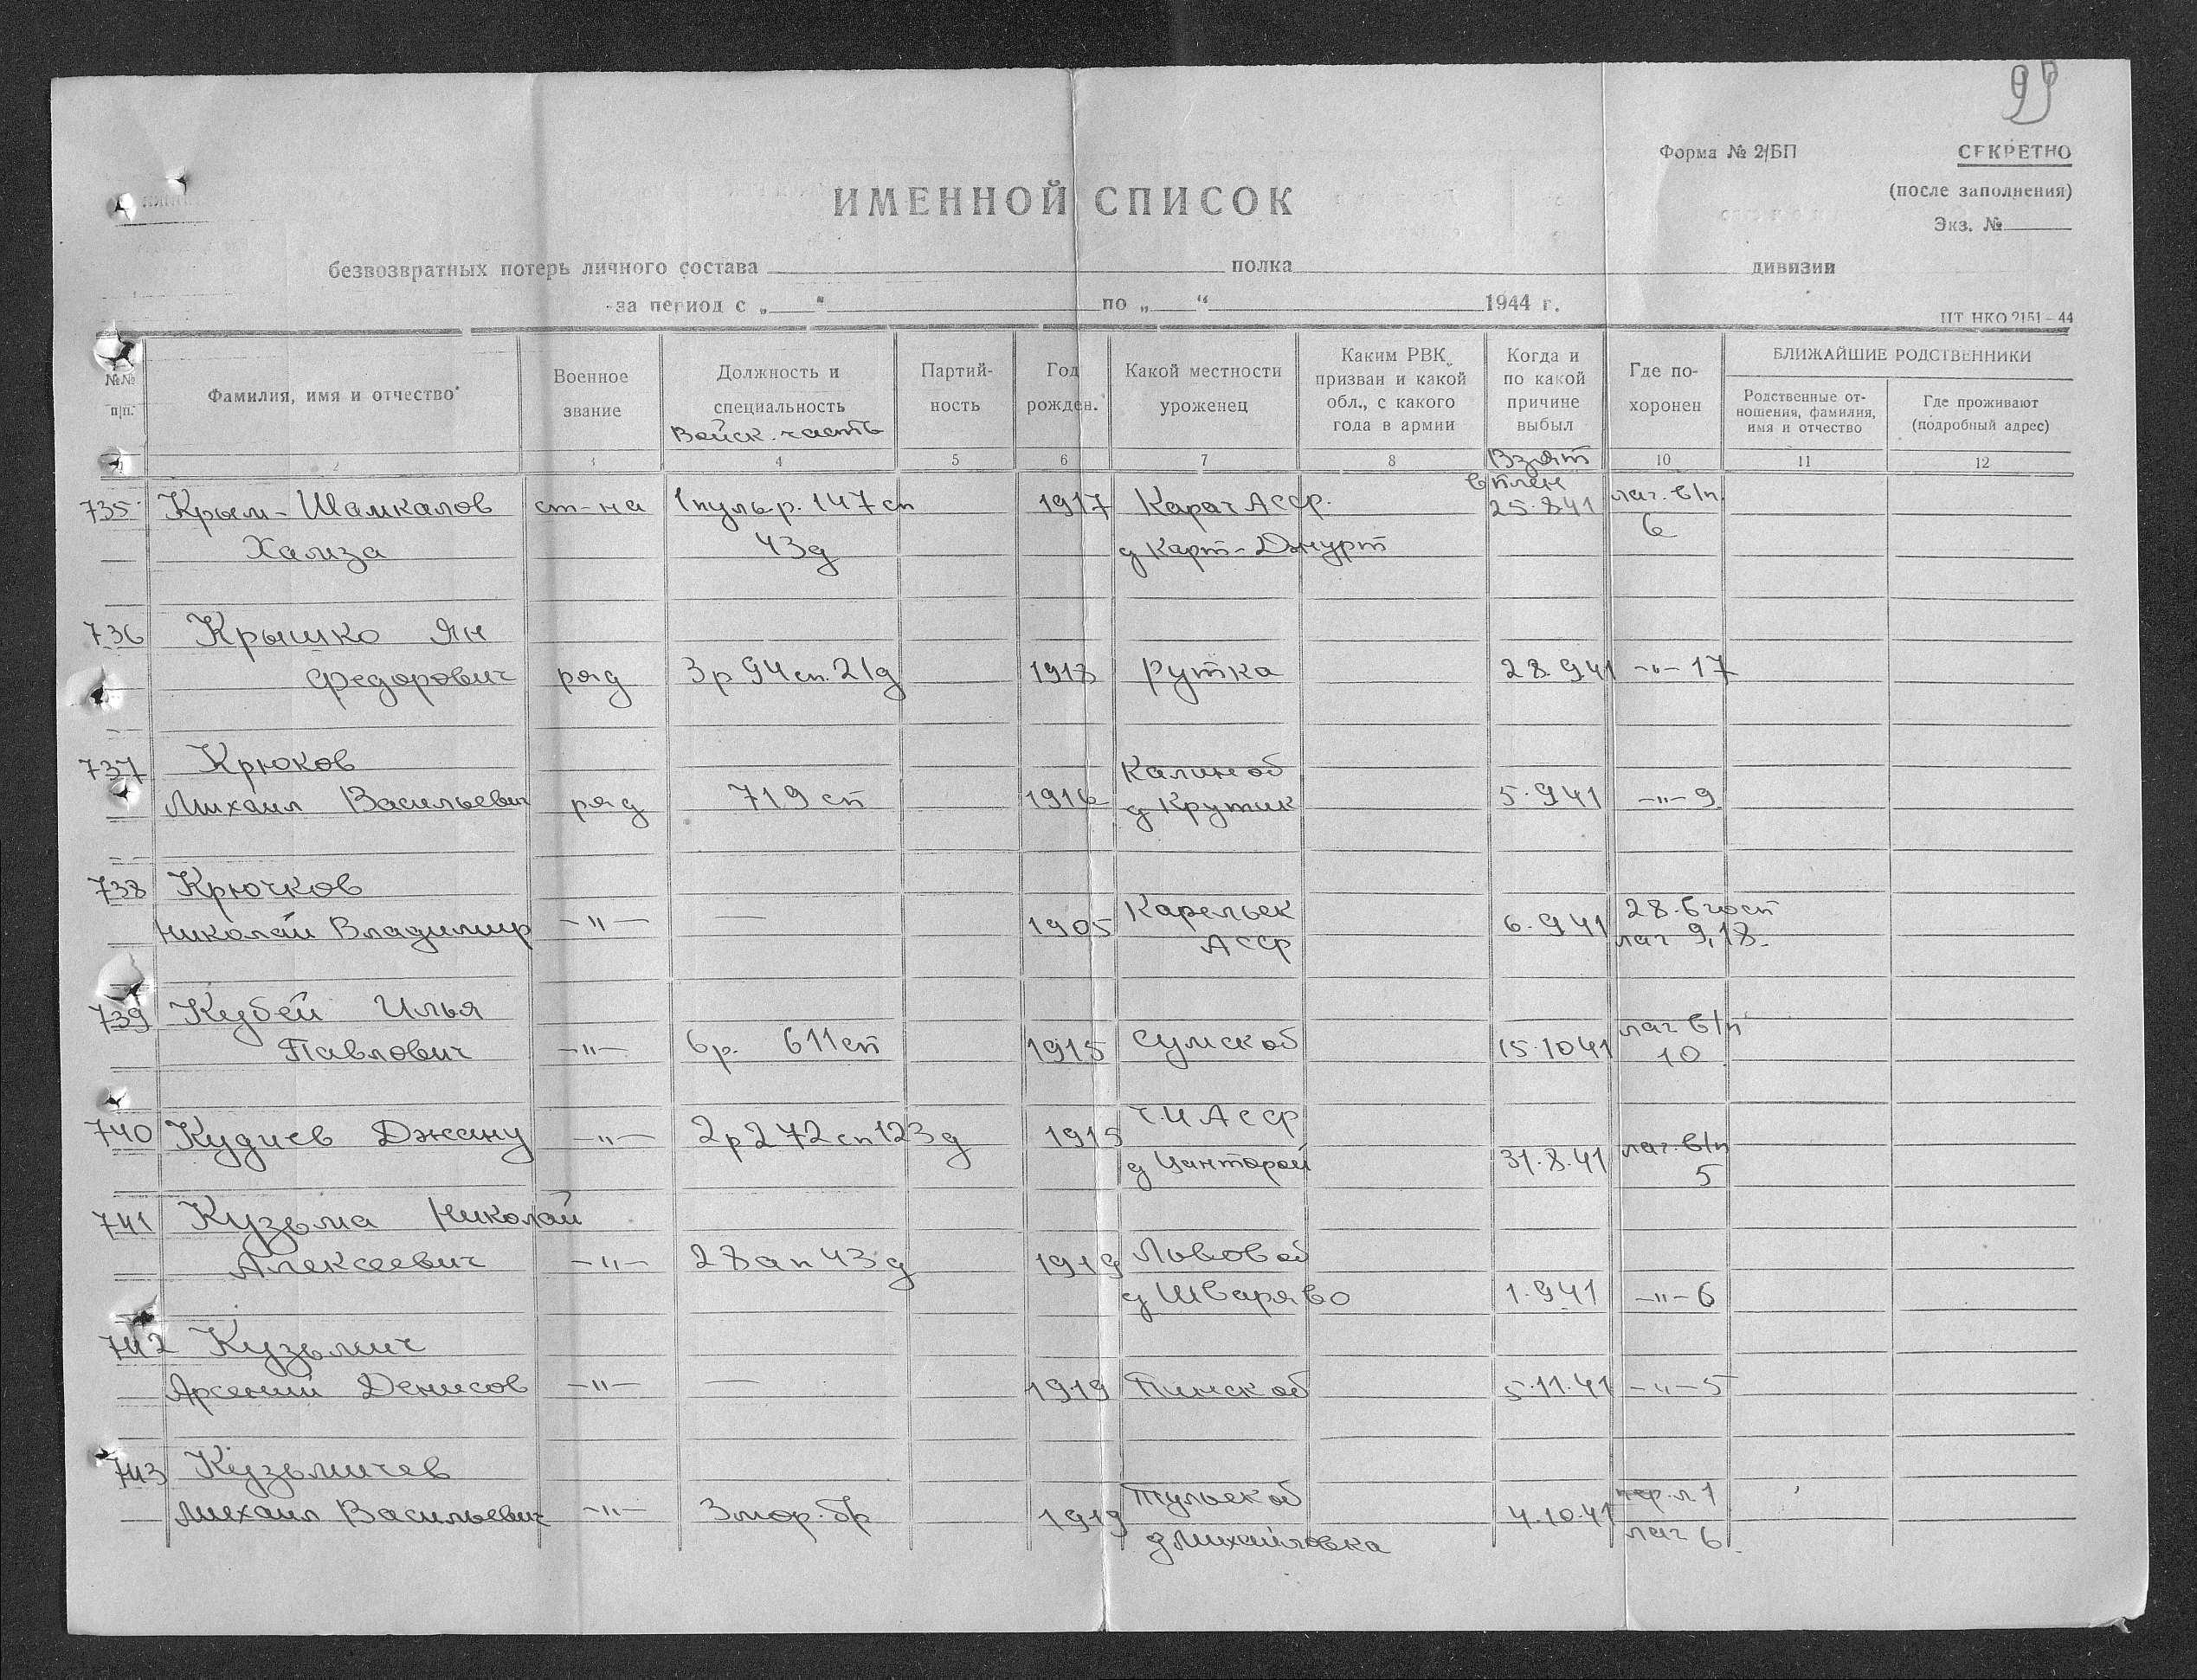 99
Форма № 2/БП
СЕКРЕТНО
(после заполнения)
Экз. №
ИМЕННОЙ СПИСОК
безвозвратных потерь личного состава полка дивизии
за период с „ “ по „ “ 1944 г.
ЦТ НКО 2151—44
№№ п/п.
Фамилия, имя и отчество
Военное звание
Должность и специальность
Войск. часть
Партий-ность
Год рожден.
Какой местности уроженец
Каким РВК призван и какой обл., с какого года в армии
Когда и по какой причине выбыл
Где по-хоронен
БЛИЖАЙШИЕ РОДСТВЕННИКИ
Родственные от-ношения, фамилия, имя и отчество
Где проживают (подробный адрес)
1 2 3 4 5 6 7 8 10 11 12
Взят
в плен
735 Крым-Шамкалов ст-на 1 пульр. 147 сп 1917 Карач АССР. 25.8.41 лаг. в/п
Хамза 43д д Карт-Джурт 6
736 Крышко Ян
Федорович ряд 3р 94 сп. 21д 1918 Рутка 28.9 41 -"- 17
737 Крюков Калин об
Михаил Васильевич ряд 719 сп 1916 д Крутик 5.9 41 -"- 9
738 Крючков Карельск 28.6 госп
Николай Владимир -"- — 1905 АССР 6.9 41 лаг 9,18.
739 Кубей Илья лаг в/п
Павлович -"- 6р. 611 сп 1915 Сумск об 15.10 41 10
740 Кудиев Джану -"- 2р 272 сп 123 д 1915 Ч.И АССР
д Цанторой 31.8.41 лаг. в/п
5
741 Кузьма Николай
Алексеевич -"- 28 ап 43 д 1919 Львов об
д Шваряво 1.9 41 -"- 6
742 Кузьмич
Арсений Денисов -"- — 1919 Пинск об 5.11.41 -"- 5
743 Кузьмичев Тульск об л 1
Михаил Васильевич -"- 3 мор. бр 1919 д Михайловка 4.10.41 лаг 6.